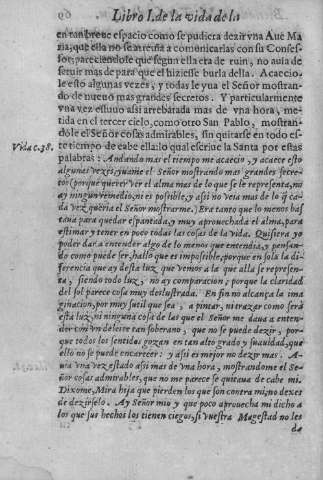 Libro I. de la vida de la
en tan breue espacio como se pudiera dezir vna Aue Ma
ria, que ella no se atreuia a comunicarlas con su Confes-
sor, pareciendole que segun ella era de ruin, no auia de
seruir mas de para que el hiziesse burla della. Acaecio-
le esto algunas vezes, y todas le yua el Señor mostran-
do de nueuo mas grandes secretos. Y particularmente
vna vez estuuo assi arrebatada mas de vna hora, me-
tida en el tercer cielo, como otro San Pablo, mostran-
dole el Señor cosas admirables, sin quitarse en todo es-
te tiempo de cabe ella: lo qual escriue la Santa por estas
Vida c.38.
palabras: Andando mas el tiempo me acaecio, y acaece esto
algunas vezes, yuame el Señor mostrando mas grandes secre-
tos (porque querer ver el alma mas de lo que se le representa, ni
ay ningun remedio, ni es posible, y assi no veia mas de lo q̃ ca-
da vez queria el Señor mostrarme.) Era tanto que lo menos bas
taua para quedar espantada, y muy aprouechada el alma, para
estimar y tener en poco todas las cosas de la vida. Quisiera yo
poder dar a entender algo de lo menos que entendia, y pensan-
do como puede ser, hallo que es impossible, porque en sola la di-
ferencia que ay desta luz que vemos a la que alla se represen-
ta, siendo todo luz, no ay comparacion; porque la claridad
del sol parece cosa muy deslustrada. En fin no alcança la ima
ginacion, por muy sutil que sea, a pintar, ni traçar como será
esta luz, ni ninguna cosa de las que el Señor me daua a enten-
der con vn deleite tan soberano, que no se puede dezir, por-
que todos los sentidos gozan en tan alto grado y suauidad, que
ello no se puede encarecer: y assi es mejor no dezir mas. A
uia vna vez estado assi mas de vna hora, mostrandome el Se-
ñor cosas admirables, que no me parece se quitaua de cabe mi.
Dixome, Mira hija que pierden los que son contra mi, no dexes
de dezirselo. Ay Señor mio y que poco aprouecha mi dicho a
los que sus hechos los tienen ciegos, si vuestra Magestad no les
da